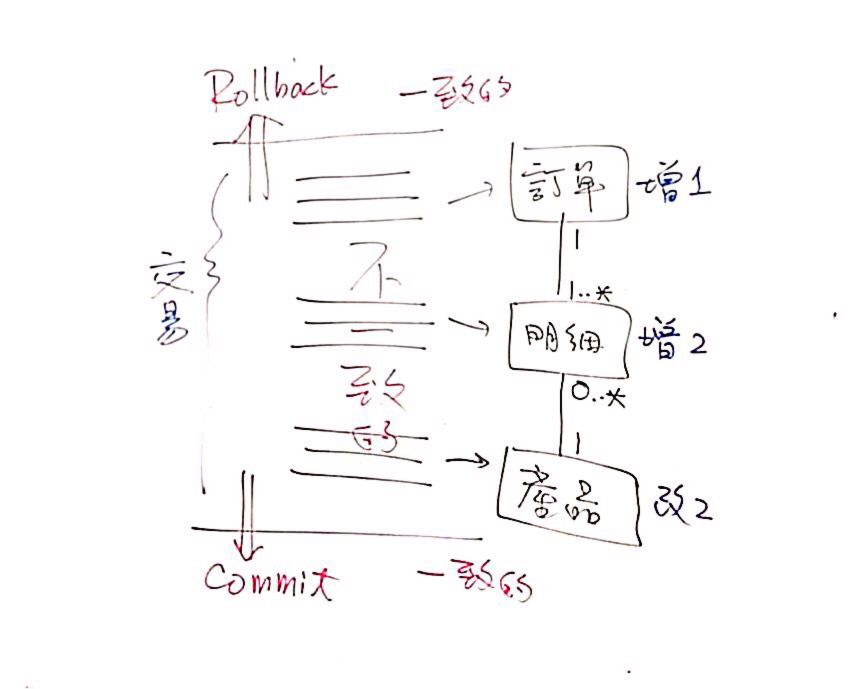 Rollback 一致的
訂單 增1
1
不
交易
1..*
明細 增2
一
致
0..*
的
1
產品 改2
Commit 一致的